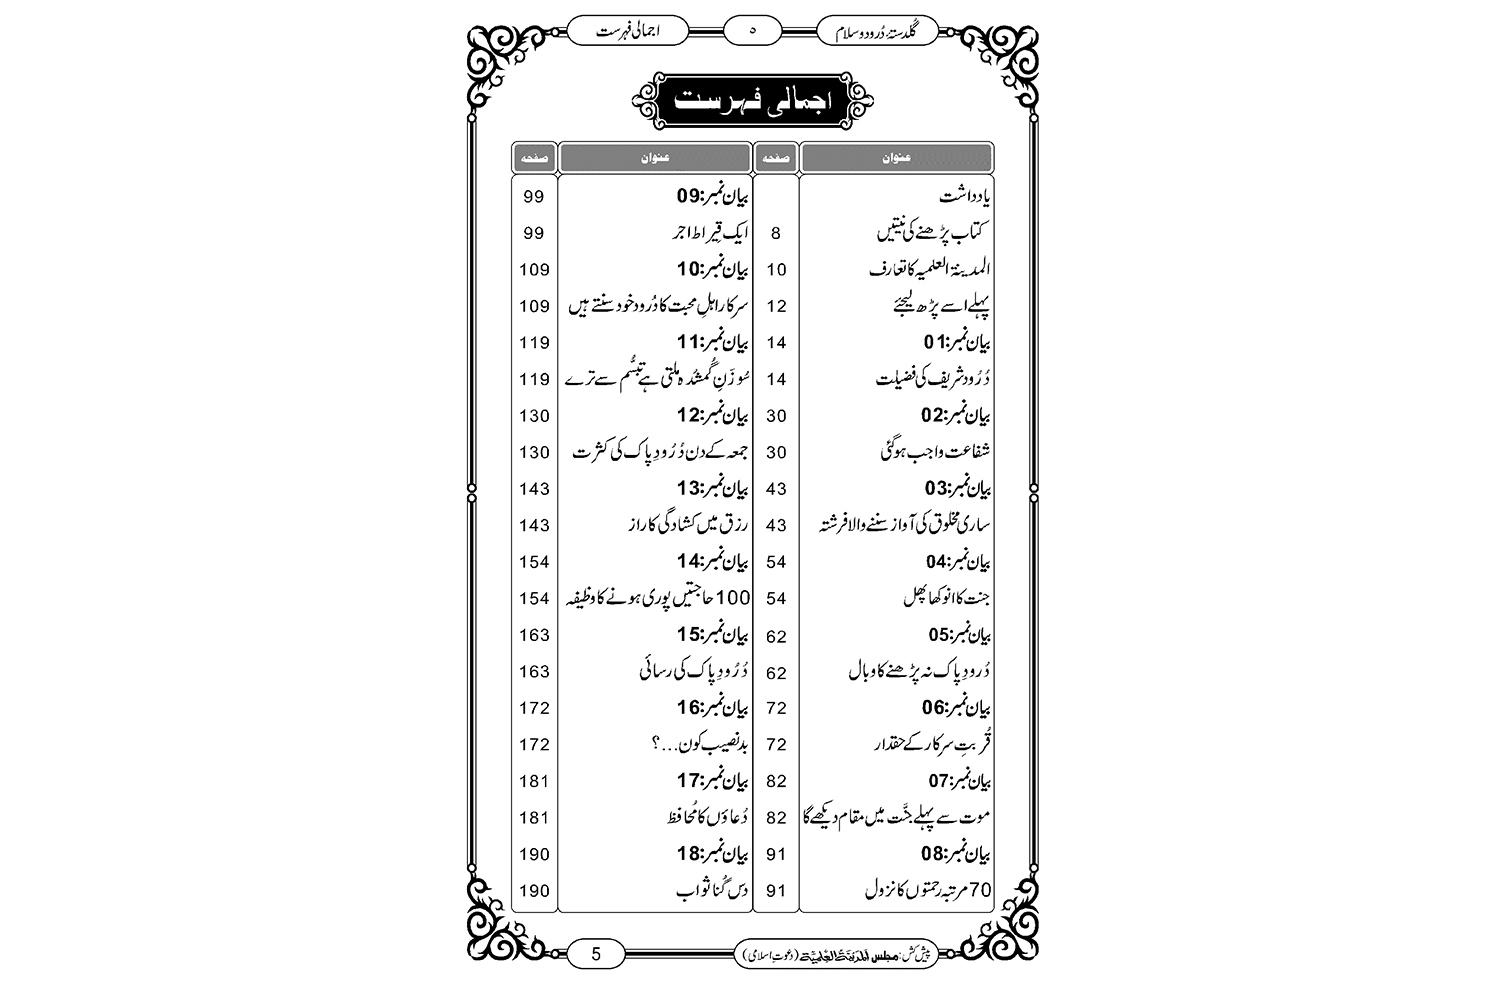 گلدستۂ دُرود و سلام
۵
اجمالی فہرست
اجمالی فہرست
عنوان صفحہ عنوان صفحہ
یادداشت
کتاب پڑھنے کی نیتیں 8
المدینۃ العلمیہ کا تعارف 10
پہلے اسے پڑھ لیجئے 12
بیان نمبر:01 14
دُرُود شریف کی فضیلت 14
بیان نمبر:02 30
شفاعت واجب ہوگئی 30
بیان نمبر:03 43
ساری مخلوق کی آواز سننے والا فرشتہ 43
بیان نمبر:04 54
جنت کا انوکھا پھل 54
بیان نمبر:05 62
دُرودِ پاک نہ پڑھنے کا وبال 62
بیان نمبر:06 72
قُربتِ سرکار کے حقدار 72
بیان نمبر:07 82
موت سے پہلے جنَّت میں مقام دیکھے گا 82
بیان نمبر:08 91
70 مرتبہ رحمتوں کا نزول 91
بیان نمبر:09 99
ایک قِیراط اجر 99
بیان نمبر:10 109
سرکار اہلِ محبت کا دُرود خود سنتے ہیں 109
بیان نمبر:11 119
سُوزَنِ گُمشُدہ ملتی ہے تبسُّم سے ترے 119
بیان نمبر:12 130
جمعہ کے دن دُرُودِ پاک کی کثرت 130
بیان نمبر:13 143
رزق میں کشادگی کا راز 143
بیان نمبر:14 154
100 حاجتیں پوری ہونے کا وظیفہ 154
بیان نمبر:15 163
دُرُودِ پاک کی رسائی 163
بیان نمبر:16 172
بدنصیب کون...؟ 172
بیان نمبر:17 181
دُعاؤں کا مُحافظ 181
بیان نمبر:18 190
دس گُنا ثواب 190
پیش کش: مجلس المدینۃ العلمیۃ (دعوتِ اسلامی)
5